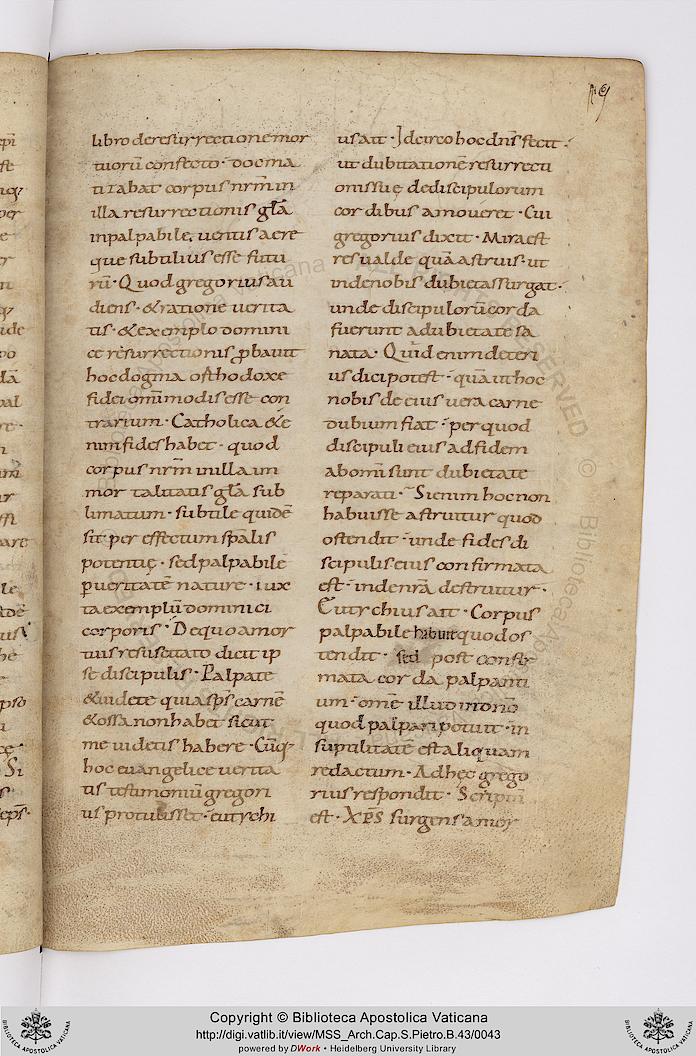 libro deresurrectionemor
tuorū confecto · docma
tizabat corpus nr̄m in
illa resurrectionis gl̄a
inpalpabile. uentis aere
que subtilius esse futu
rū · Quod gregorius au
diens · & ratione uerita
tis · & exemplo domini
cę resurrectionis ꝓbauit
hoc dogma orthodoxe
fidei omnimodis esse con
trarium · Catholica &e
nim fides habet · quod
corpus nr̄m in illa im
mortalitatis gl̄a sub
limatum · subtile quidē
sit per effectum sp̄alis
potentię · sed palpabile
ꝑ ueritatē nature · iux
ta exemplū dominici
corporis · De quo a mor
tuis resuscitato dicit ip
se discipulis · Palpate
& uidete quia sp̄s carnē
& ossa non habet sicut
me uidetis habere · Cūq·
hoc euangelice uerita
tis testimoniū gregori
us protulisset · eutychi
us ait · Idcirco hoc dn̄s fecit ·
ut dubitationē resurrecti
onis suę de discipulorum
cordibus amoueret · Cui
gregorius dixit · Mira est
res ualde quā astruis · ut
inde nobis dubietas surgat ·
unde discipulorū corda
fuerunt a dubietate sa
nata · Quid enim deteri
us dici potest · quā ut hoc
nobis de eius uera carne
dubium fiat · per quod
discipuli eius ad fidem
ab omni sunt dubietate
reparati · Si enim hoc non
habuisse astruitur quod
ostendit · unde fides di
scipulis eius confirmata
est · inde nr̄a destruitur ·
Eutychius ait · Corpus
palpabile habuit quod os
tendit · sed post confir
mata corda palpanti
um · omē illud in dn̄o
quod palpari potuit · in
suptilitatē est aliquam
redactum · Ad hęc grego
rius respondit · Scriptū
est · XP̄S surgens a mor
Copyright © Biblioteca Apostolica Vaticana
http://digi.vatlib.it/view/MSS_Arch.Cap.S.Pietro.B.43/0043
powered by DWork • Heidelberg University Library